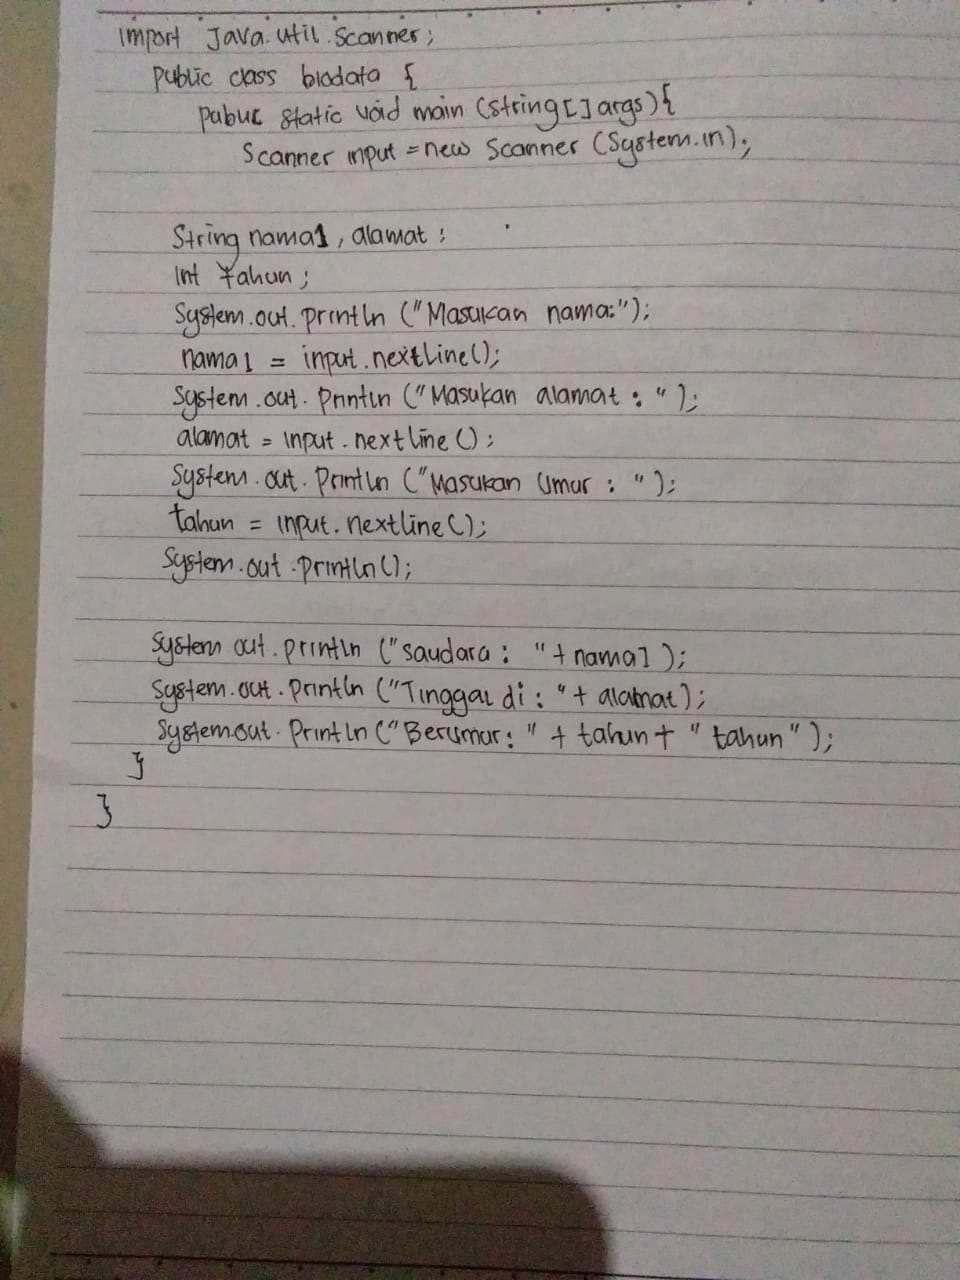 import Java.util.Scanner;
public class biodata {
public static void main (string[] args){
Scanner input = new Scanner (System.in);
String nama1, alamat;
int tahun;
System.out.println ("Masukan nama:");
nama1 = input.nextLine();
System.out.println ("Masukan alamat : ");
alamat = input.nextline();
System.out.println ("Masukan Umur : ");
tahun = input.nextline();
System.out.println();
System out.println ("saudara : "+nama1);
System.out.println ("Tinggal di : "+ alamat);
System.out.println ("Berumur: " + tahun + " tahun");
}
}